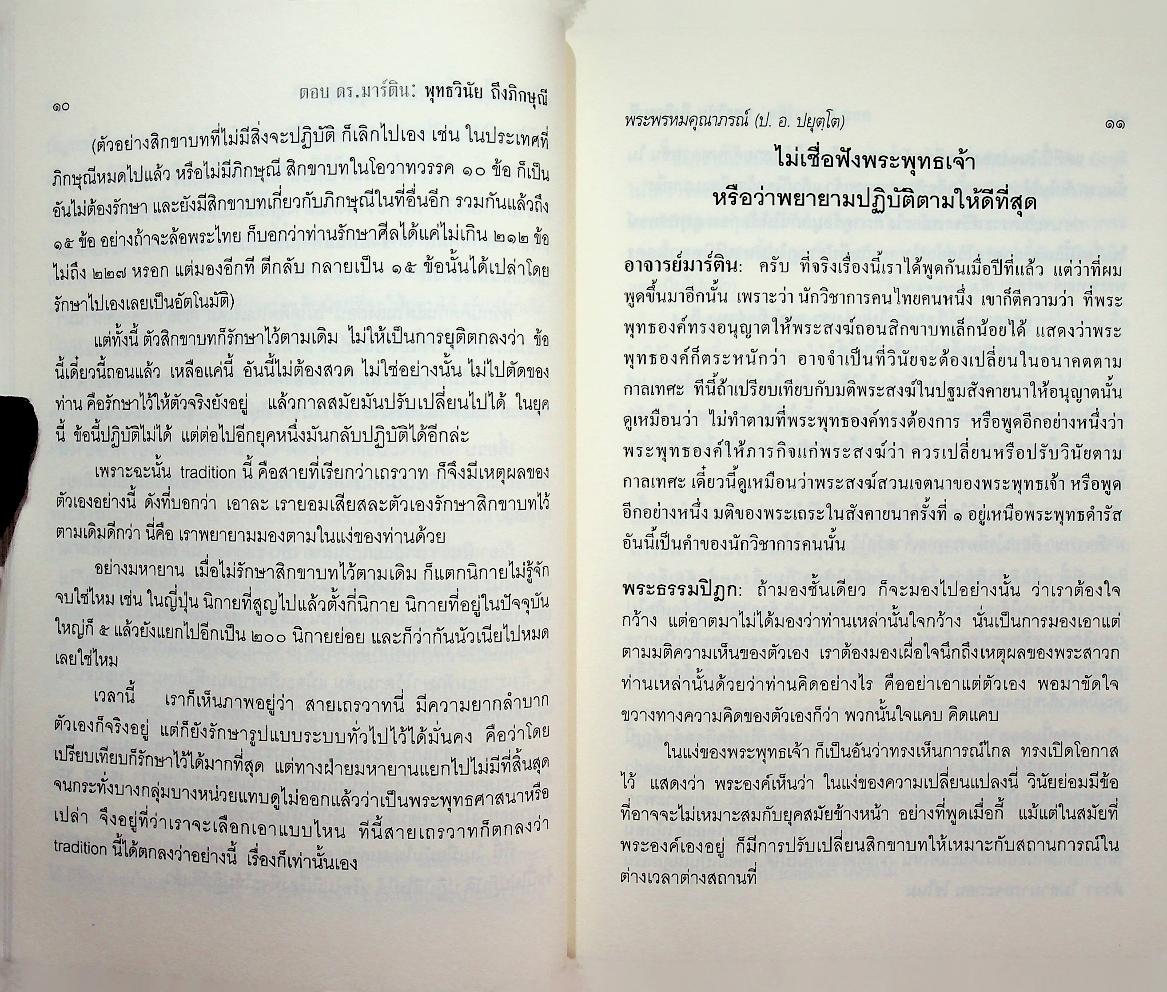 ๑๐
ตอบ ดร.มาร์ติน: พุทธวินัย ถึงภิกษุณี
(ตัวอย่างสิกขาบทที่ไม่มีสิ่งจะปฏิบัติ ก็เลิกไปเอง เช่น ในประเทศที่
ภิกษุณีหมดไปแล้ว หรือไม่มีภิกษุณี สิกขาบทในโอวาทวรรค ๑๐ ข้อ ก็เป็น
อันไม่ต้องรักษา และยังมีสิกขาบทเกี่ยวกับภิกษุณีในที่อื่นอีก รวมกันแล้วถึง
๑๕ ข้อ อย่างถ้าจะล้อพระไทย ก็บอกว่าท่านรักษาศีลได้แค่ไม่เกิน ๒๑๒ ข้อ
ไม่ถึง ๒๒๗ หรอก แต่มองอีกที ตีกลับ กลายเป็น ๑๕ ข้อนั้นได้เปล่าโดย
รักษาไปเองเลยเป็นอัตโนมัติ)
แต่ทั้งนี้ ตัวสิกขาบทก็รักษาไว้ตามเดิม ไม่ให้เป็นการยุติตกลงว่า ข้อ
นี้เดี๋ยวนี้ถอนแล้ว เหลือแค่นี้ อันนี้ไม่ต้องสวด ไม่ใช่อย่างนั้น ไม่ไปตัดของ
ท่าน คือรักษาไว้ให้ตัวจริงยังอยู่ แล้วกาลสมัยมันปรับเปลี่ยนไปได้ ในยุค
นี้ ข้อนี้ปฏิบัติไม่ได้ แต่ต่อไปอีกยุคหนึ่งมันกลับปฏิบัติได้อีกล่ะ
เพราะฉะนั้น tradition นี้ คือสายที่เรียกว่าเถรวาท ก็จึงมีเหตุผลของ
ตัวเองอย่างนี้ ดังที่บอกว่า เอาละ เรายอมเสียสละตัวเองรักษาสิกขาบทไว้
ตามเดิมดีกว่า นี่คือ เราพยายามมองตามในแง่ของท่านด้วย
อย่างมหายาน เมื่อไม่รักษาสิกขาบทไว้ตามเดิม ก็แตกนิกายไม่รู้จัก
จบใช่ไหม เช่น ในญี่ปุ่น นิกายที่สูญไปแล้วตั้งกี่นิกาย นิกายที่อยู่ในปัจจุบัน
ใหญ่ก็ ๕ แล้วยังแยกไปอีกเป็น ๒๐๐ นิกายย่อย และก็ว่ากันนัวเนียไปหมด
เลยใช่ไหม
เวลานี้ เราก็เห็นภาพอยู่ว่า สายเถรวาทนี่ มีความยากลำบาก
ตัวเองก็จริงอยู่ แต่ก็ยังรักษารูปแบบระบบทั่วไปไว้ได้มั่นคง คือว่าโดย
เปรียบเทียบก็รักษาไว้ได้มากที่สุด แต่ทางฝ่ายมหายานแยกไปไม่มีที่สิ้นสุด
จนกระทั่งบางกลุ่มบางหน่วยแทบดูไม่ออกแล้วว่าเป็นพระพุทธศาสนาหรือ
เปล่า จึงอยู่ที่ว่าเราจะเลือกเอาแบบไหน ทีนี้สายเถรวาทก็ตกลงว่า
tradition นี้ได้ตกลงว่าอย่างนี้ เรื่องก็เท่านั้นเอง
พระพรหมคุณาภรณ์ (ป. อ. ปยุตฺโต)
๑๑
ไม่เชื่อฟังพระพุทธเจ้า
หรือว่าพยายามปฏิบัติตามให้ดีที่สุด
อาจารย์มาร์ติน: ครับ ที่จริงเรื่องนี้เราได้พูดกันเมื่อปีที่แล้ว แต่ว่าที่ผม
พูดขึ้นมาอีกนั้น เพราะว่า นักวิชาการคนไทยคนหนึ่ง เขาก็ตีความว่า ที่พระ
พุทธองค์ทรงอนุญาตให้พระสงฆ์ถอนสิกขาบทเล็กน้อยได้ แสดงว่าพระ
พุทธองค์ก็ตระหนักว่า อาจจำเป็นที่วินัยจะต้องเปลี่ยนในอนาคตตาม
กาลเทศะ ทีนี้ถ้าเปรียบเทียบกับมติพระสงฆ์ในปฐมสังคายนาให้อนุญาตนั้น
ดูเหมือนว่า ไม่ทำตามที่พระพุทธองค์ทรงต้องการ หรือพูดอีกอย่างหนึ่งว่า
พระพุทธองค์ให้ภารกิจแก่พระสงฆ์ว่า ควรเปลี่ยนหรือปรับวินัยตาม
กาลเทศะ เดี๋ยวนี้ดูเหมือนว่าพระสงฆ์สวนเจตนาของพระพุทธเจ้า หรือพูด
อีกอย่างหนึ่ง มติของพระเถระในสังคายนาครั้งที่ ๑ อยู่เหนือพระพุทธดำรัส
อันนี้เป็นคำของนักวิชาการคนนั้น
พระธรรมปิฎก: ถ้ามองชั้นเดียว ก็จะมองไปอย่างนั้น ว่าเราต้องใจ
กว้าง แต่อาตมาไม่ได้มองว่าท่านเหล่านั้นใจกว้าง นั่นเป็นการมองเอาแต่
ตามมติความเห็นของตัวเอง เราต้องมองเผื่อใจนึกถึงเหตุผลของพระสาวก
ท่านเหล่านั้นด้วยว่าท่านคิดอย่างไร คืออย่าเอาแต่ตัวเอง พอมาขัดใจ
ขวางทางความคิดของตัวเองก็ว่า พวกนั้นใจแคบ คิดแคบ
ในแง่ของพระพุทธเจ้า ก็เป็นอันว่าทรงเห็นการณ์ไกล ทรงเปิดโอกาส
ไว้ แสดงว่า พระองค์เห็นว่า ในแง่ของความเปลี่ยนแปลงนี้ วินัยย่อมมีข้อ
ที่อาจจะไม่เหมาะสมกับยุคสมัยข้างหน้า อย่างที่พูดเมื่อกี้ แม้แต่ในสมัยที่
พระองค์เองอยู่ ก็มีการปรับเปลี่ยนสิกขาบทให้เหมาะกับสถานการณ์ใน
ต่างเวลาต่างสถานที่